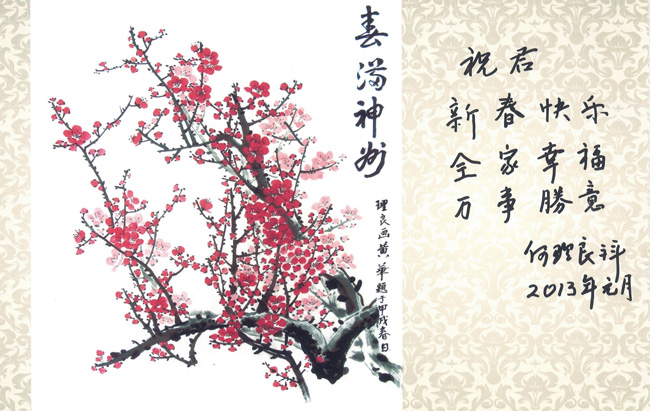 春满神州
理良画黄华题于甲戌春日
祝君
新春快乐
全家幸福
万事勝意
何理良拜
2013年元月